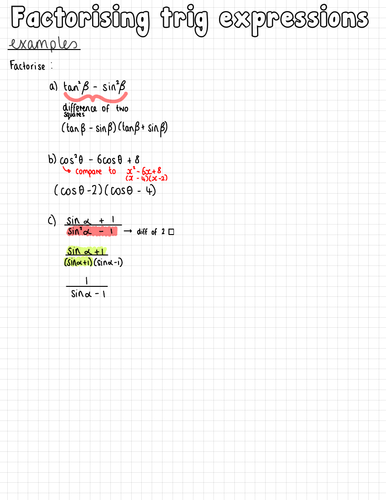 Factorising trig expressions
examples
Factorise :
a) tan²β - sin²β
difference of two
squares
(tanβ - sinβ)(tanβ + sinβ)
b) cos²θ - 6cosθ + 8
↳ compare to x² - 6x + 8
(x - 4)(x - 2)
(cosθ - 2)(cosθ - 4)
c) sin α + 1
sin²α - 1 → diff of 2 □
sin α + 1
(sinα+1)(sinα-1)
1
sinα - 1